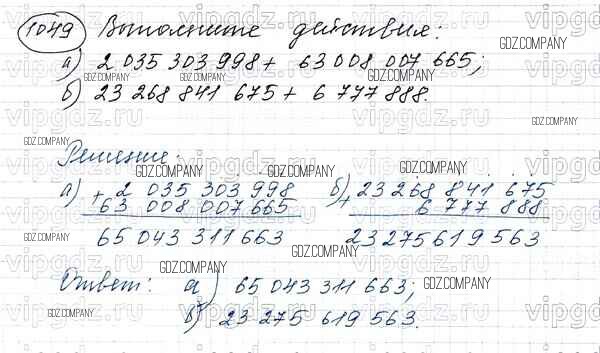 1049 Выполните действия:
а) 2 035 303 998 + 63 008 007 665;
б) 23 268 841 675 + 6 777 888.
Решение:
а) + 2 035 303 998 б) + 23 268 841 675
63 008 007 665 6 777 888
65 043 311 663 23 275 619 563
Ответ: а) 65 043 311 663;
б) 23 275 619 563.
GDZ.COMPANY
vipgdz.ru